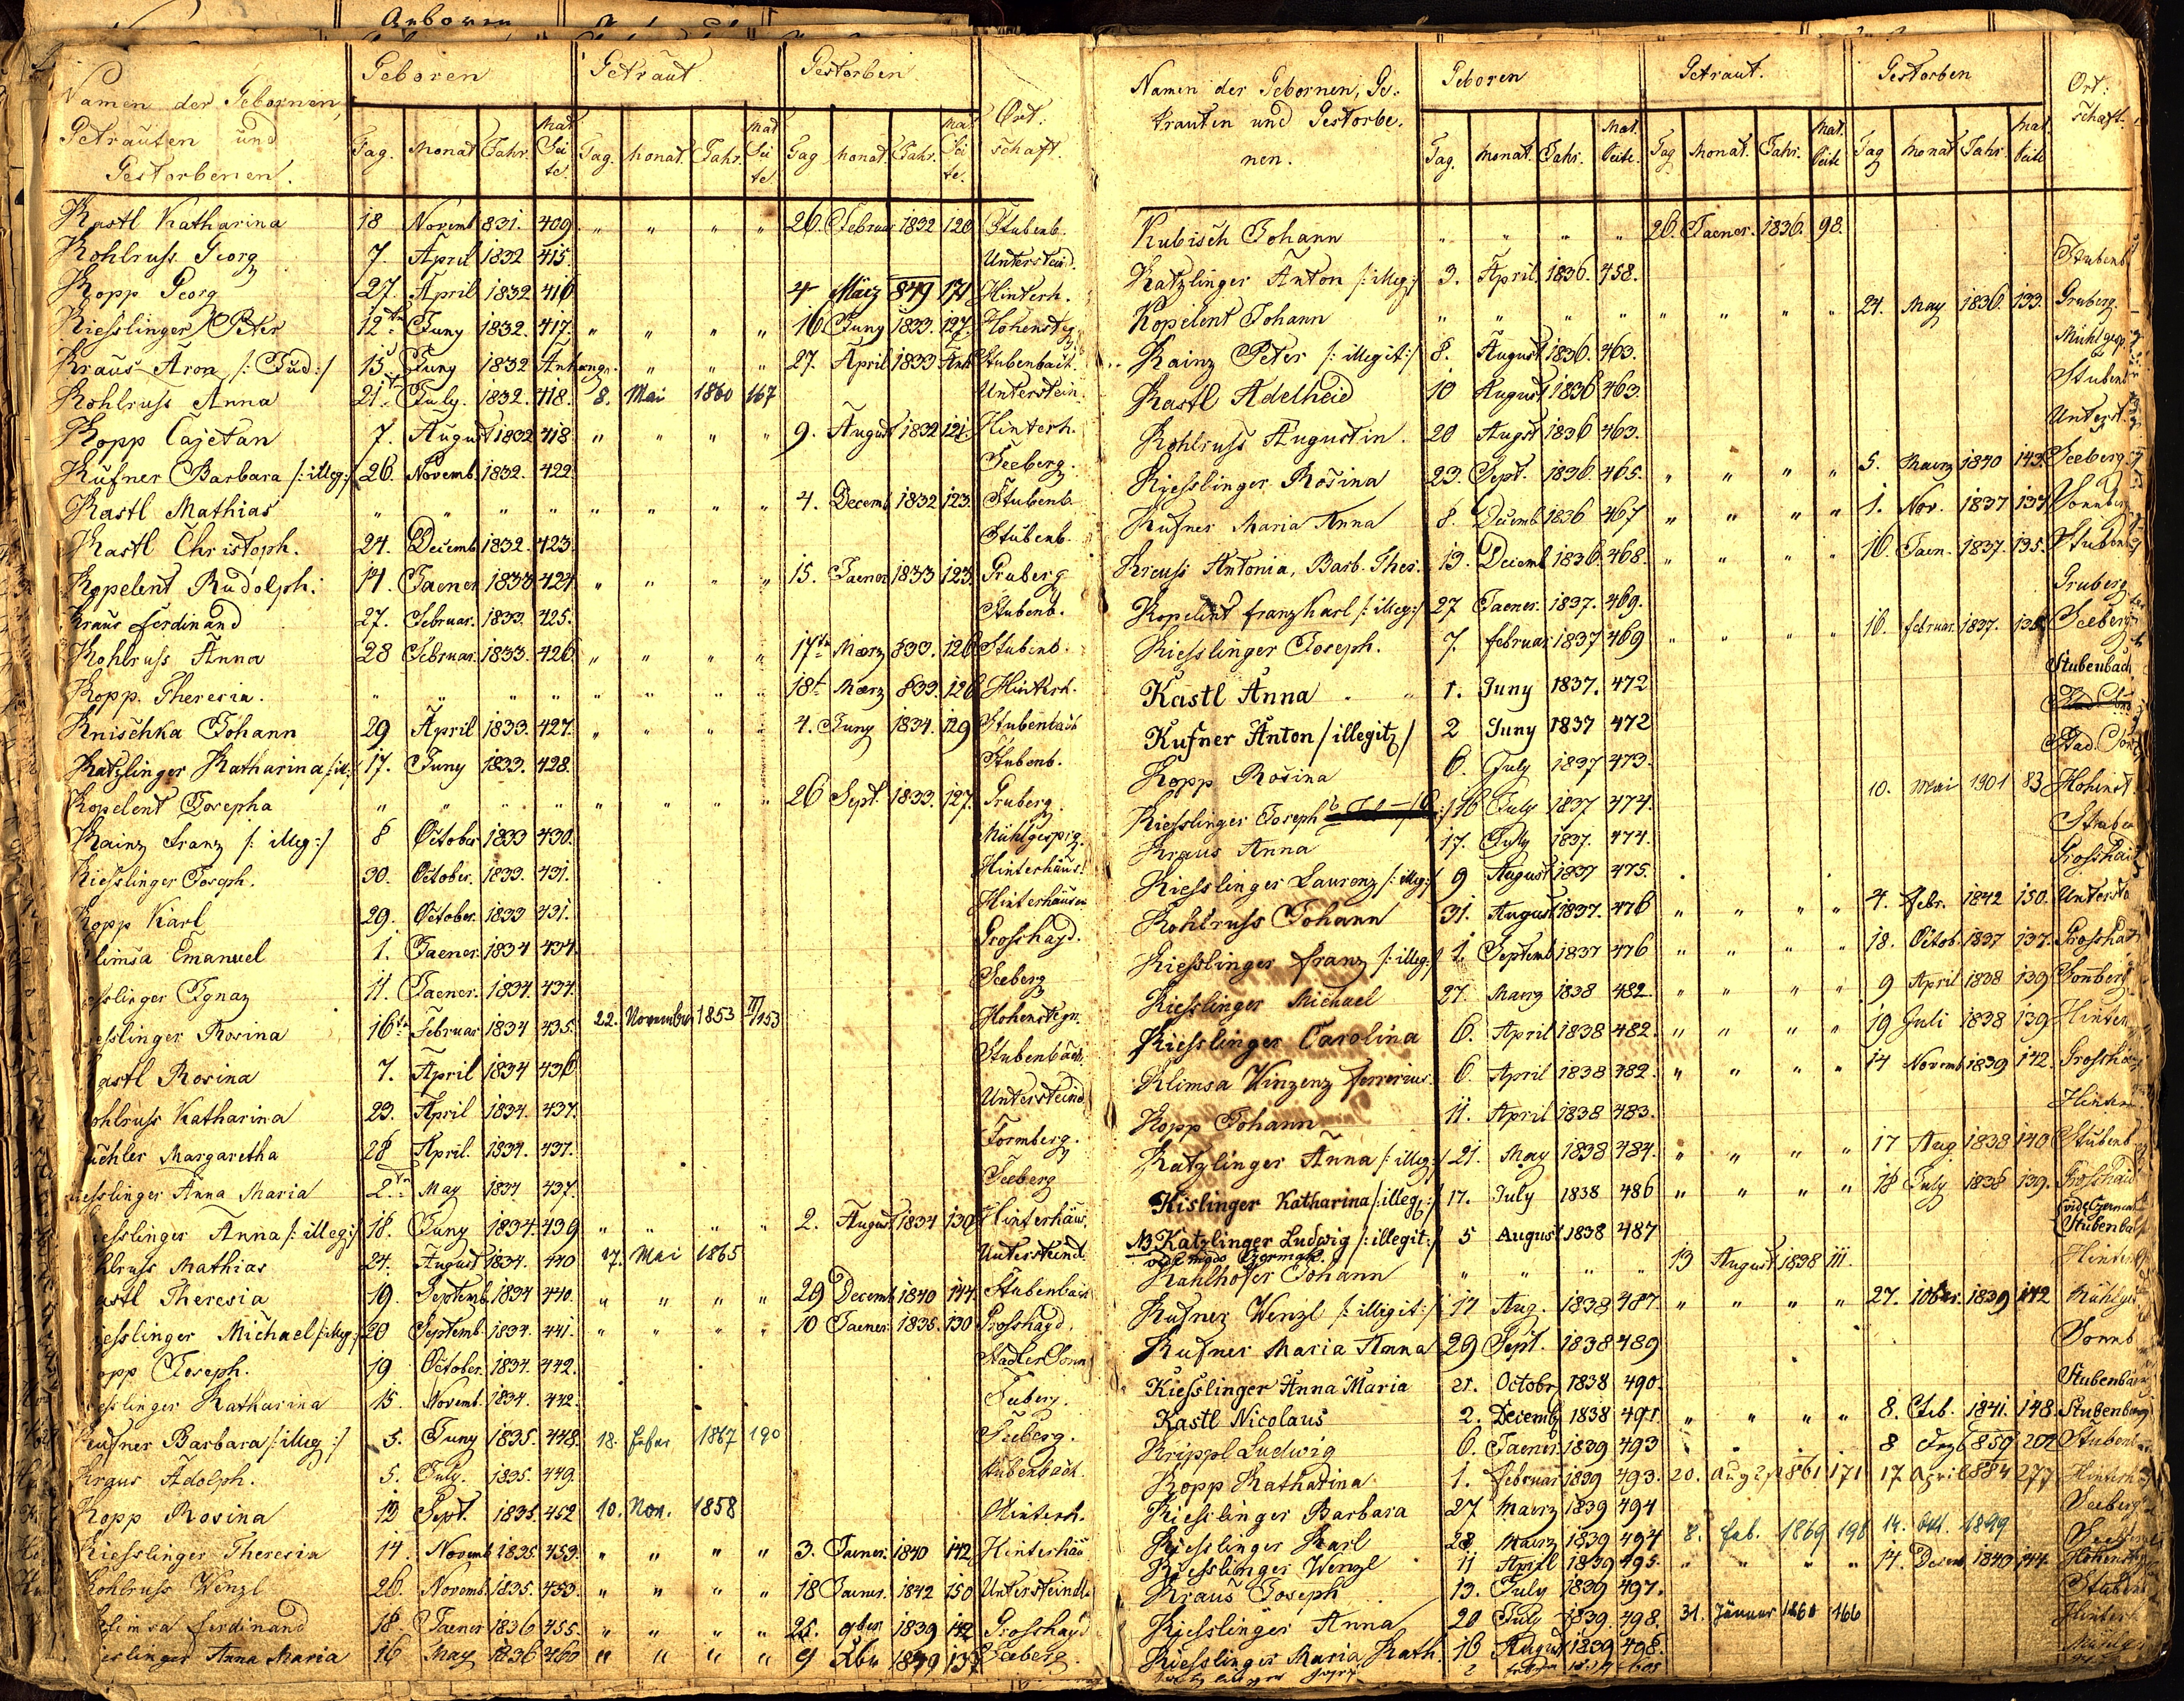 Geboren
Namen der Gebornen, Getrauten und Gestorbenen.
Geboren Getraut. Gestorben. Ort:schaft.
Tag. Monat Jahr. Mat Seite. Tag. Monat. Jahr. Mat Seite. Tag Monat. Jahr. Mat. Seite.
Kastl Katharina 18 Novemb 831. 409. " " " " 26. Februar 1832 120 Stubenb.
Kohlruss Georg 7. April 1832 415. Untersteind.
Kopp Georg 27. April 1832 416 4 März 849 171 Hinterh.
Kiesslinger Peter 12tn Juny 1832. 417. " " " " 16 Juny 1833. 127. Hohensteg.
Kraus Aron /: Jud :/ 15 Juny 1832 Anhange. " " " 27. April 1833 Anh Stubenbach.
Kohlruss Anna 21. July. 1832. 418. 8. Mai 1860 167 Unterstein.
Kopp Cajetan 7. August 1832 418 " " " " 9. August 1832 121 Hinterh.
Kufner Barbara /: illeg :/ 26. Novemb. 1832. 422. Seeberg.
Kastl Mathias " " " " " " " " 4. Decemb 1832 123. Stubenb.
Kastl Christoph. 24. Decemb 1832. 423. Stubenb.
Kopelent Rudolph. 14. Jaener 1833 424 " " " " 15. Jaener 1833 123. Gruberg
Kraus Ferdinand 27. Februar. 1833. 425. Stubenb.
Kohlruss Anna 28 Februar. 1833. 426 " " " " 17tn Maerz 833. 126 Stubenb.
Kopp. Theresia. " " " " " " " " 18t. Maerz 833. 126 Hinterh.
Knischka Johann 29 April 1833. 427. " " " " 4. Juny 1834. 129 Stubenbach
Katzlinger Katharina /: il: 17. Juny 1833. 428. Stubenb.
Kopelent Josepha " " " " " " " " 26 Sept. 1833. 127. Gruberg
Kainz Franz /: illeg :/ 8 October 1833 430. Mühlgesprg.
Kiesslinger Joseph. 30. October. 1833. 431. Hinterhäus.
Kopp Karl 29. October. 1833 431. Hinterhäusn
limsa Emanuel 1. Jaener. 1834 434. Grosshayd.
sslinger Ignaz 11. Jaener. 1834. 434. Seeberg
esslinger Rosina 16tn Februar 1834 435. 22. November 1853 III/153 Hohenstegn.
astl Rosina 7. April 1834 436 Stubenbach.
ohlruss Katharina 23. April 1834. 437. Untersteind.
üchler Margaretha 28 April. 1834. 437. Formberg.
iesslinger Anna Maria 2tn May 1834 437. Seeberg
iesslinger Anna /: illeg :/ 18. Juny 1834. 439 " " " " 2. August 1834 130 Hinterhäus.
hlruss Mathias 24. August 1834. 440 17. Mai 1865 Untersteind.
astl Theresia 19. Septemb. 1834 440. " " " " 29 Decemb 1840 144 Stubenbach
iesslinger Michael /: illeg :/ 20 Septemb. 1834. 441. " " " " 10 Jaener. 1835. 130 Grosshayd.
opp Joseph. 19. October. 1834. 442.
iesslinger Katharina 15. Novemb. 1834. 442.
Kufner Barbara /: illeg :/ 5. Juny 1835. 448. 18. Feber 1867 190 Seeberg.
Kraus Adolph. 5. July. 1835. 449. Stubenbach.
Kopp Rosina 13 Sept. 1835. 452 10. Nov. 1858 Hinterh.
Kiesslinger Theresia 14. Novemb. 1835. 453. " " " " 3. Jaener. 1840 142 Hinterhäu
Kohlruss Wenzl 26. Novemb. 1835. 453. " " " " 18 Jaener. 1842 150 Untersteindl
limsa Ferdinand 18. Jaener 1836 455. " " " " 25. 9ber 1839 142 Grosshayd
ieslinger Anna Maria 16 May 1836 460 " " " " 9 Xber 137 Seeberg.
Namen der Gebornen, Getrauten und Gestorbenen.
Geboren Getraut. Gestorben Ort:schaft.
Tag. Monat. Jahr. Mat. Seite. Tag Monat. Jahr. Mat. Seite Tag Monat Jahr. Mat Seite
Kubisch Johann " " " " 26. Jaener. 1836. 98.
Katzlinger Anton /: illeg :/ 3. April 1836. 458. Stubenb
Kopelent Johann " " " " " " " " 24. May 1836 133. Gruberg.
Kainz Peter /: illegit :/ 8. August 1836. 463. Mühlgesp.
Kastl Adelheid 10 August 1836 463. Stubenb
Kohlruss Augustin. 20 August 1836 463. Unterst.
Kiesslinger Rosina 23. Sept. 1836. 465. " " " " 5. Maerz 1840 143. Seeberg.
Kufner Maria Anna 8. Decemb 1836 467 " " " " 1. Nov. 1837 137 Sonnberg
Kreuss Antonia, Barb. Ther. 13. Decemb 1836. 468. " " " " 16. Jaen. 1837. 135. Stubenb
Kopelent Franz Karl /: illeg :/ 27 Jaener. 1837. 469. Gruberg
Kiesslinger Joseph. 7. Februar 1837 469 " " " " 16. Februar 1837. 135 Seeberg
Kastl Anna 1. Juny 1837. 472 Stubenbach
Kufner Anton /illegit/ 2 Juny 1837 472
Kopp Rosina 6. July 1837 473.
Kiesslinger Joseph 16 July 1837 474. 10. Mai 1901 83 Hohenst
Kraus Anna 17. July 1837. 474. Stuben
Kiesslinger Laurenz /: illeg :/ 9 August 1837 475. Grosshaid
Kohlruss Johann 31. August 1837. 476 " " " " 4. Febr. 1842 150. Unterste
Kiesslinger Franz /: illeg :/ 1. Septemb 1837 476 " " " " 18. Octob. 1837 137. Grosshai
Kiesslinger Michael 27. Maerz 1838 482 " " " " 9 April 1838 139 Sonberg
Kiesslinger Carolina 6. April 1838 482. " " " " 19 Juli 1838 139 Hinter
Klimsa Vinzenz Ferrerius. 6. April 1838 482. " " " " 14 Novemb 1839 142. Grosshai
Kopp Johann 11. April 1838 483. Hinter
Katzlinger Anna /: illeg :/ 21. May 1838 484. " " " " 17 Aug. 1838 140 Stubenb
Kislinger Katharina /: illeg :/ 17. July 1838 486 " " " " 18 July 1838 139. Grosshaid
NB. Katzlinger Ludwig /: illegit :/ 5 August 1838 487 Stubenba
vide modo Czermak.
Kahlhofer Johann " " " " 13 August 1838 111. Hinter
Kufner Wenzl /: illigit :/ 17 Aug. 1838 487. " " " " 27. 10ber. 1839 142 Mühlge
Kufner Maria Anna 29 Sept. 1838 489 Sonnb
Kiesslinger Anna Maria 21. Octobr 1838 490. Stubenbach
Kastl Nicolaus 2. Decemb 1838 491. " " " " 8. Feb. 1841. 148. Stubenbach
Krippl Ludwig 6. Jaener. 1839 493 8 Stubenb
Kopp Katharina 1. Februar 1839 493. 20. Aug 1861 171 17 April 884 277 Hinterh
Kiesslinger Barbara 27 Maerz 1839 494 Seeberg
Kiesslinger Karl 28 Maerz 1839 494 8. Feb. 1869 198 14. Okt. 1899 Seeberg
Kiesslinger Wenzl 11 April 1839 495. " " " " 14. Decemb 1840 144. Hohensteg
Kraus Joseph 13. July 1839 497. Stuben
Kiesslinger Anna 20 July 1839. 498. 31. Jänner 1860 166 Hinterh
Kiesslinger Maria Kath. 16 August 1839 498.